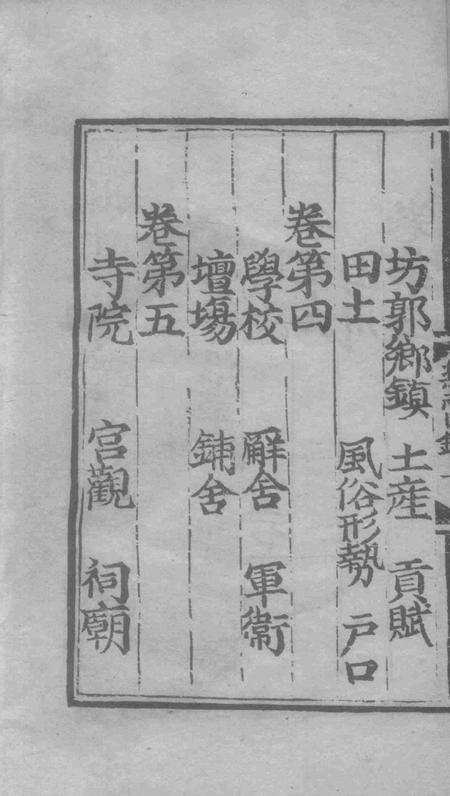 坊郭鄉鎮 土産 貢賦
田土 風俗形勢 戸口
卷第四
學校 廨舍 軍衛
壇場 鋪舍
卷第五
寺院 宫觀 祠廟